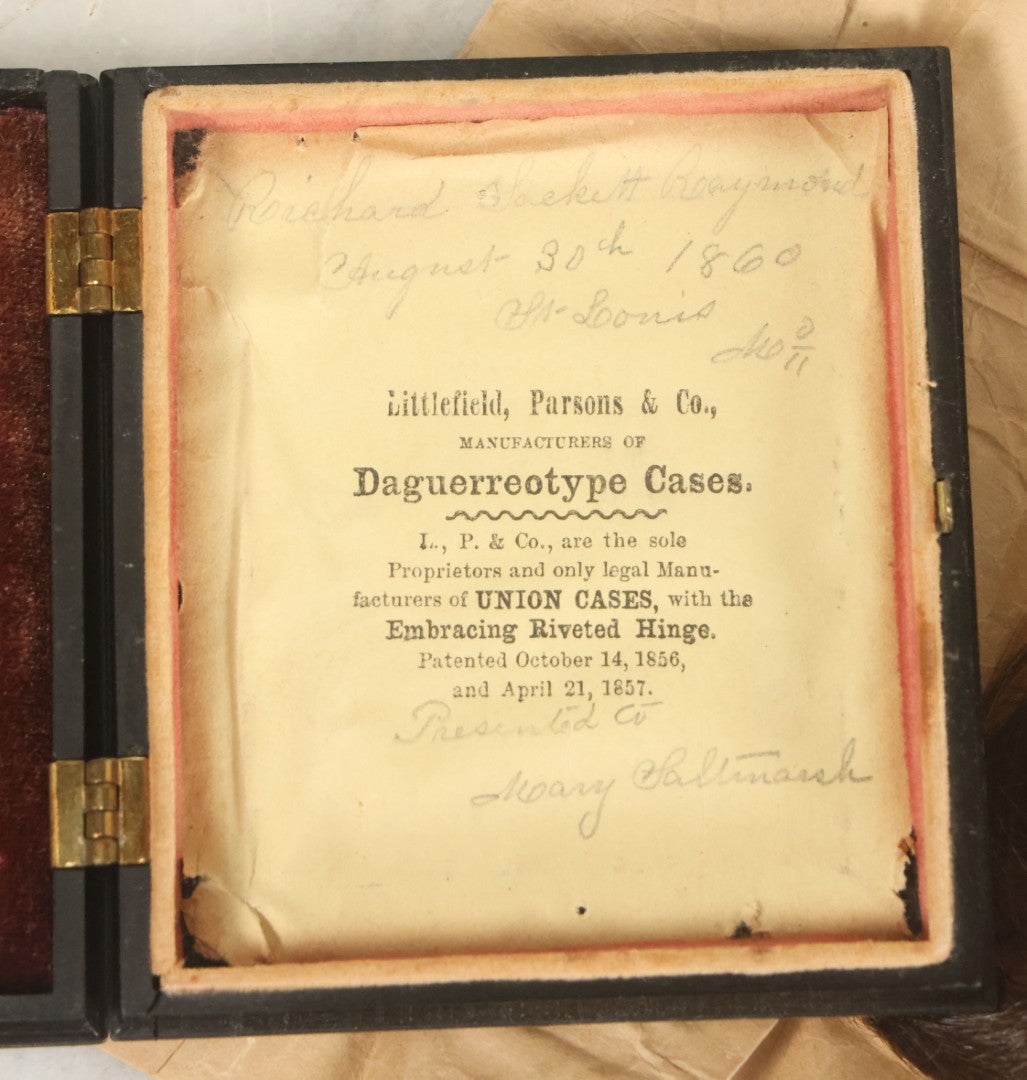 Richard Sackett Raymond
August 30th 1860
St. Louis
Mo
Littlefield, Parsons & Co.,
MANUFACTURERS OF
Daguerreotype Cases.
L., P. & Co., are the sole
Proprietors and only legal Manu-
facturers of UNION CASES, with the
Embracing Riveted Hinge.
Patented October 14, 1856,
and April 21, 1857.
Presented to
Mary Saltmarsh